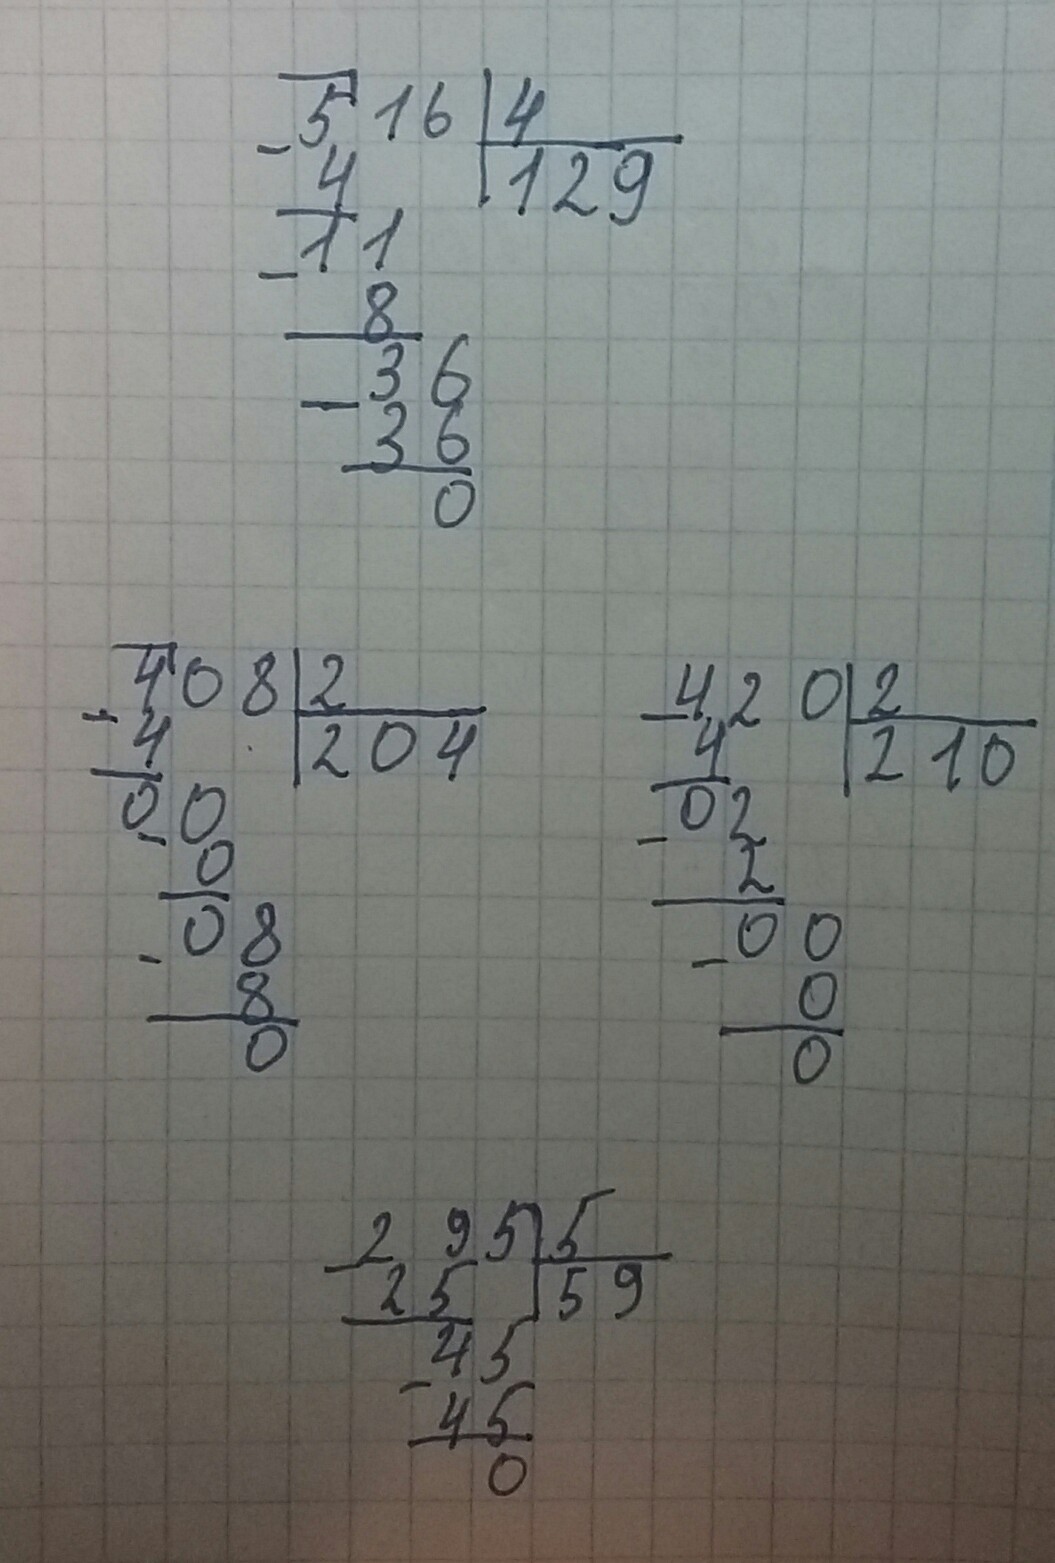 516 4
- 4 129
11
- 8
36
- 36
0
408 2
- 4 204
00
- 0
08
- 8
0
420 2
- 4 210
02
- 2
00
- 0
0
295 5
- 25 59
45
- 45
0